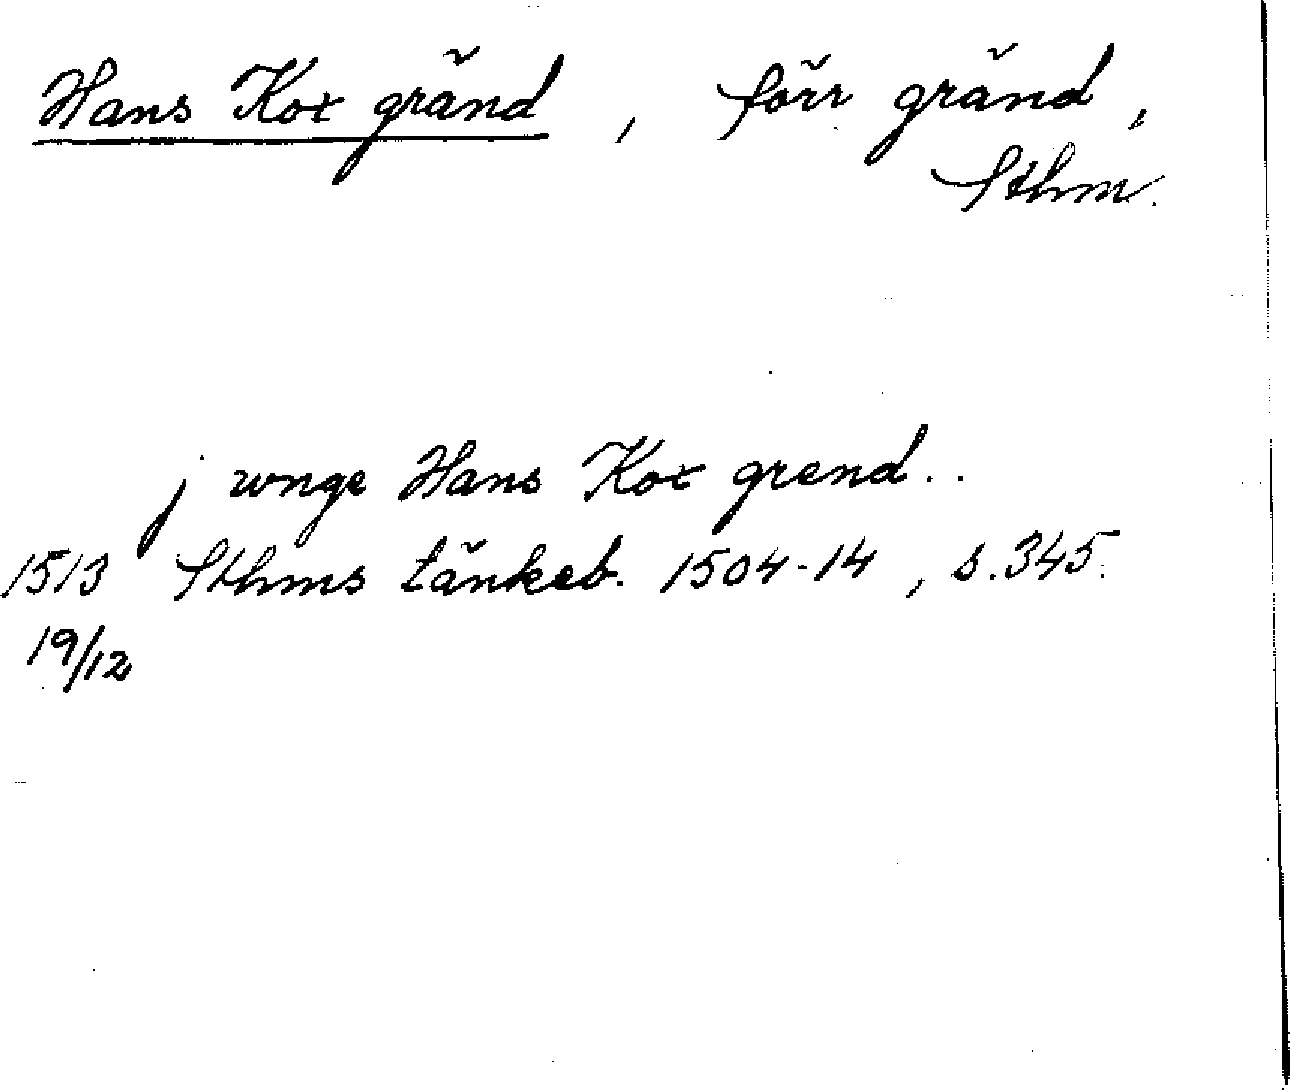 Hans Kox gränd, förr gränd,
Sthm.
j wnge Hans Kox grend..
1513 Sthms tänkeb. 1504-14, s. 345.
19/12